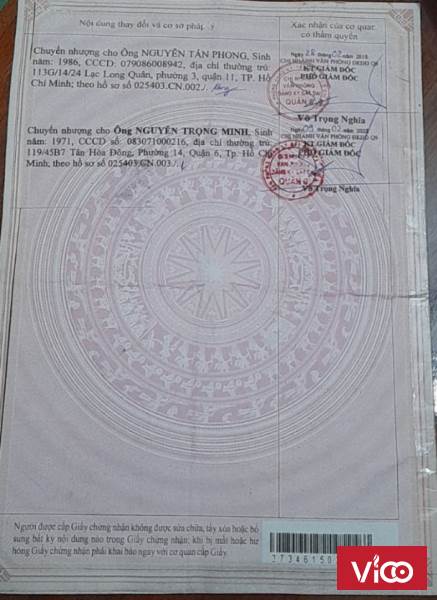 Nội dung thay đổi và cơ sở pháp lý
Xác nhận của cơ quan
có thẩm quyền
Chuyển nhượng cho Ông NGUYỄN TẤN PHONG, Sinh
năm: 1986, CCCD: 079086008942, địa chỉ thường trú:
113G/14/24 Lạc Long Quân, phường 3, quận 11, TP. Hồ
Chí Minh; theo hồ sơ số 025403.CN.002./.
KT.GIÁM ĐỐC
PHÓ GIÁM ĐỐC
QUẬN 6
Võ Trọng Nghĩa
Chuyển nhượng cho Ông NGUYỄN TRỌNG MINH, Sinh
năm: 1971, CCCD số: 083071000216, địa chỉ thường trú:
119/45B7 Tân Hòa Đông, Phường 14, Quận 6, Tp. Hồ Chí
Minh, theo hồ sơ số 025403.CN.003./.
KT.GIÁM ĐỐC
PHÓ GIÁM ĐỐC
QUẬN 6
Võ Trọng Nghĩa
Người được cấp Giấy chứng nhận không được sửa chữa, tẩy xóa hoặc bổ
sung bất kỳ nội dung nào trong Giấy chứng nhận; khi bị mất hoặc hư
hỏng Giấy chứng nhận phải khai báo ngay với cơ quan cấp Giấy.
VICO